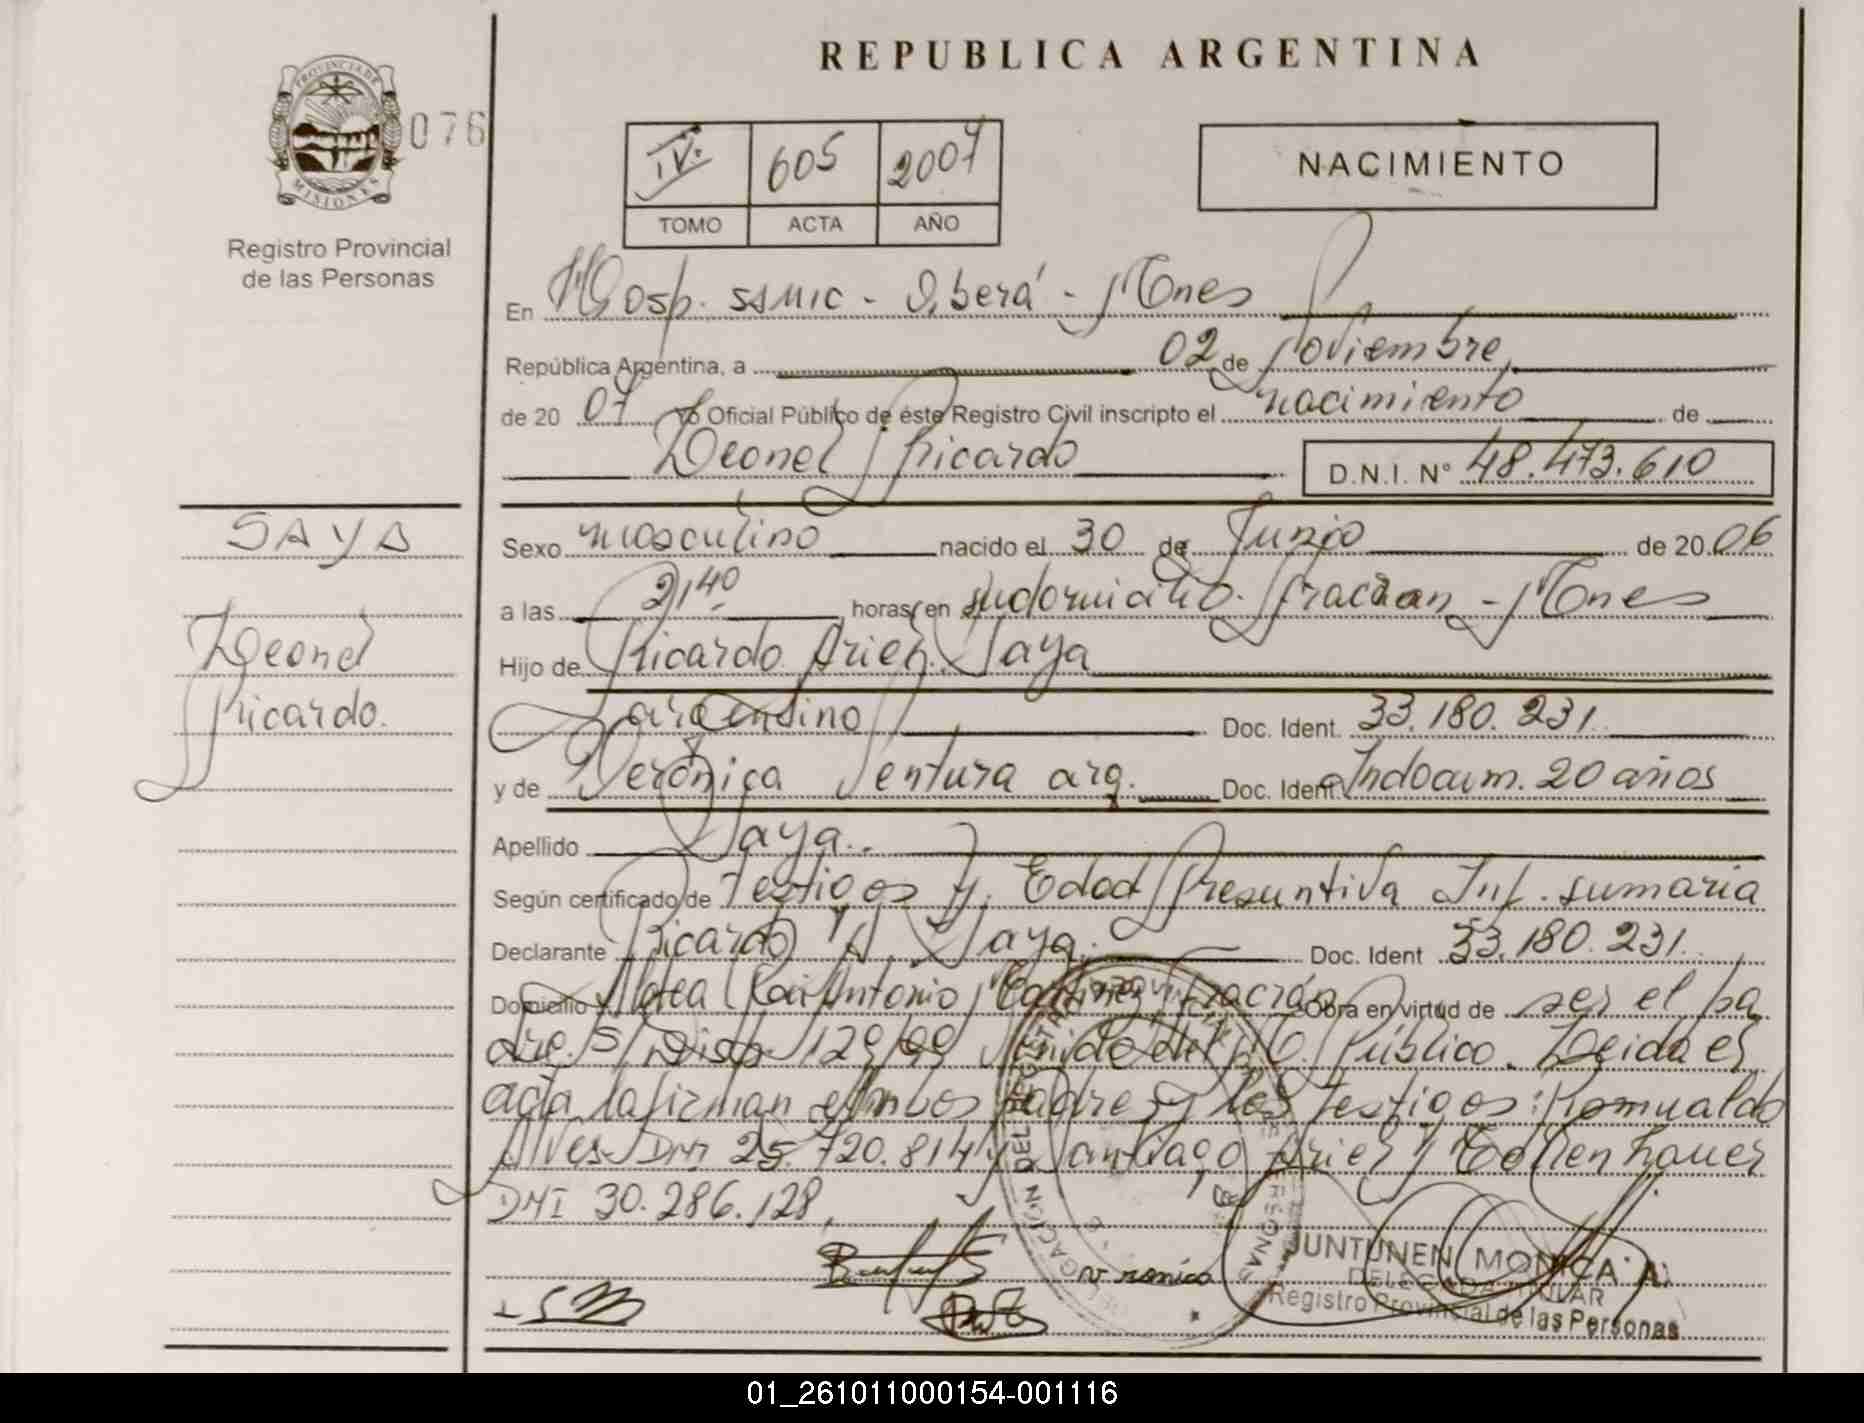 REPUBLICA ARGENTINA
PROVINCIA DE
MISIONES
076
Registro Provincial
de las Personas
IV. 605 2007
TOMO ACTA AÑO
NACIMIENTO
En Hosp. SAMIC - Oberá - Mnes
República Argentina, a 02 de Noviembre
de 20 07 Yo Oficial Público de éste Registro Civil inscripto el nacimiento de
Leonel Ricardo D.N.I. N° 48.473.610
SAYA
Leonel
Ricardo.
Sexo masculino nacido el 30 de Junio de 20 06
a las 21 40 horas, en domicilio. Fracran - Mnes
Hijo de Ricardo Ariel Saya
argentino Doc. Ident. 33.180.231.
y de Verónica Ventura arg. Doc. Ident. Indocum. 20 años
Apellido Saya..
Según certificado de testigos y Edad Presuntiva Inf. sumaria
Declarante Ricardo A. Saya. Doc. Ident 33.180.231.
Domicilio Aldea Antonio Martínez Fracrán Obra en virtud de ser el pa
dre. S/ Disp 129/99 Público. Leida el
acta la firman ambos padres y los testigos: Romualdo
Alves DNI 25.720.814 y Santiago Ariel
DNI 30.286.128,
v ronica
JUNTUNEN MONICA A.
DELEGADA TITULAR
Registro Provincial de las Personas
01_261011000154-001116